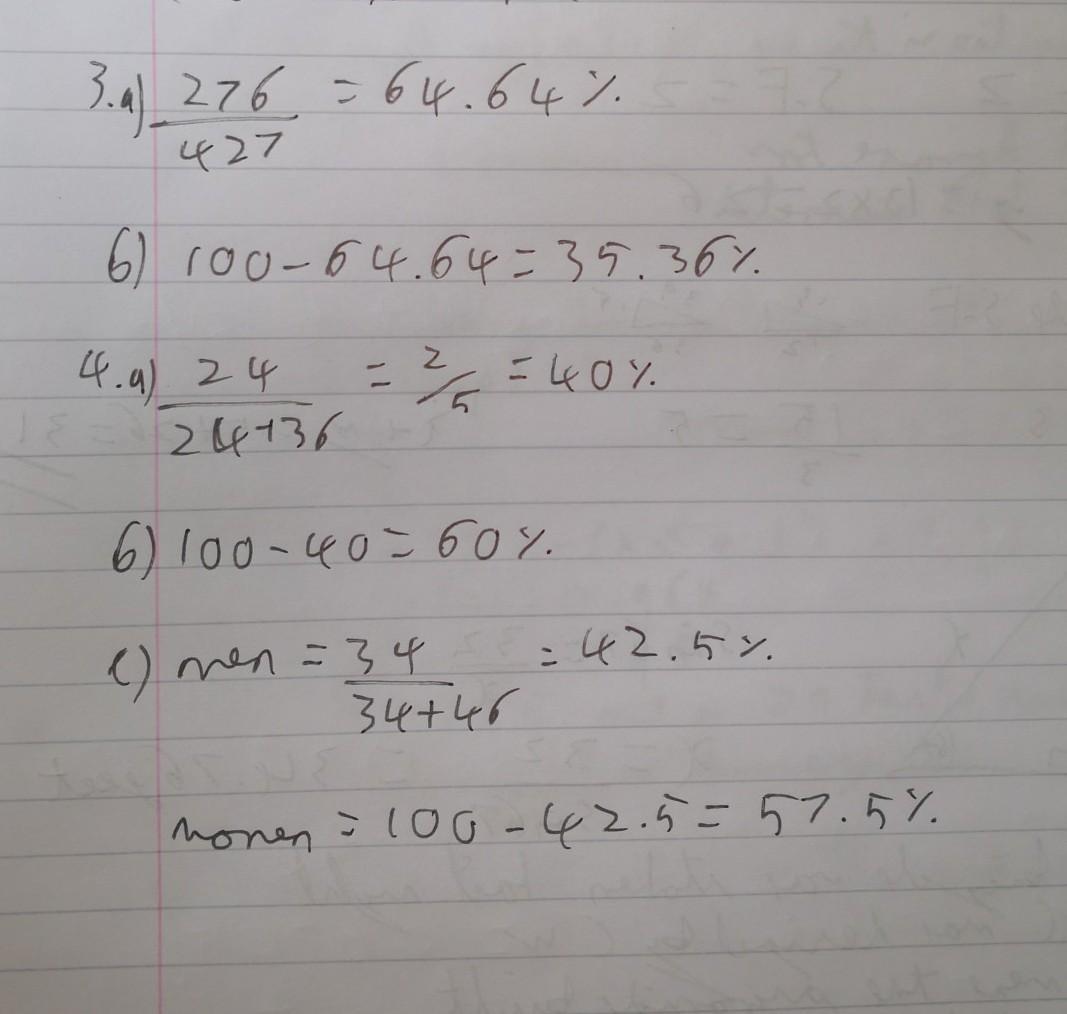 3.a) 276/427 = 64.64%
b) 100-64.64=35.36%
4.a) 24/24+36 = 2/5 = 40%
b) 100-40=60%
c) men = 34/34+46 = 42.5%
women = 100-42.5=57.5%